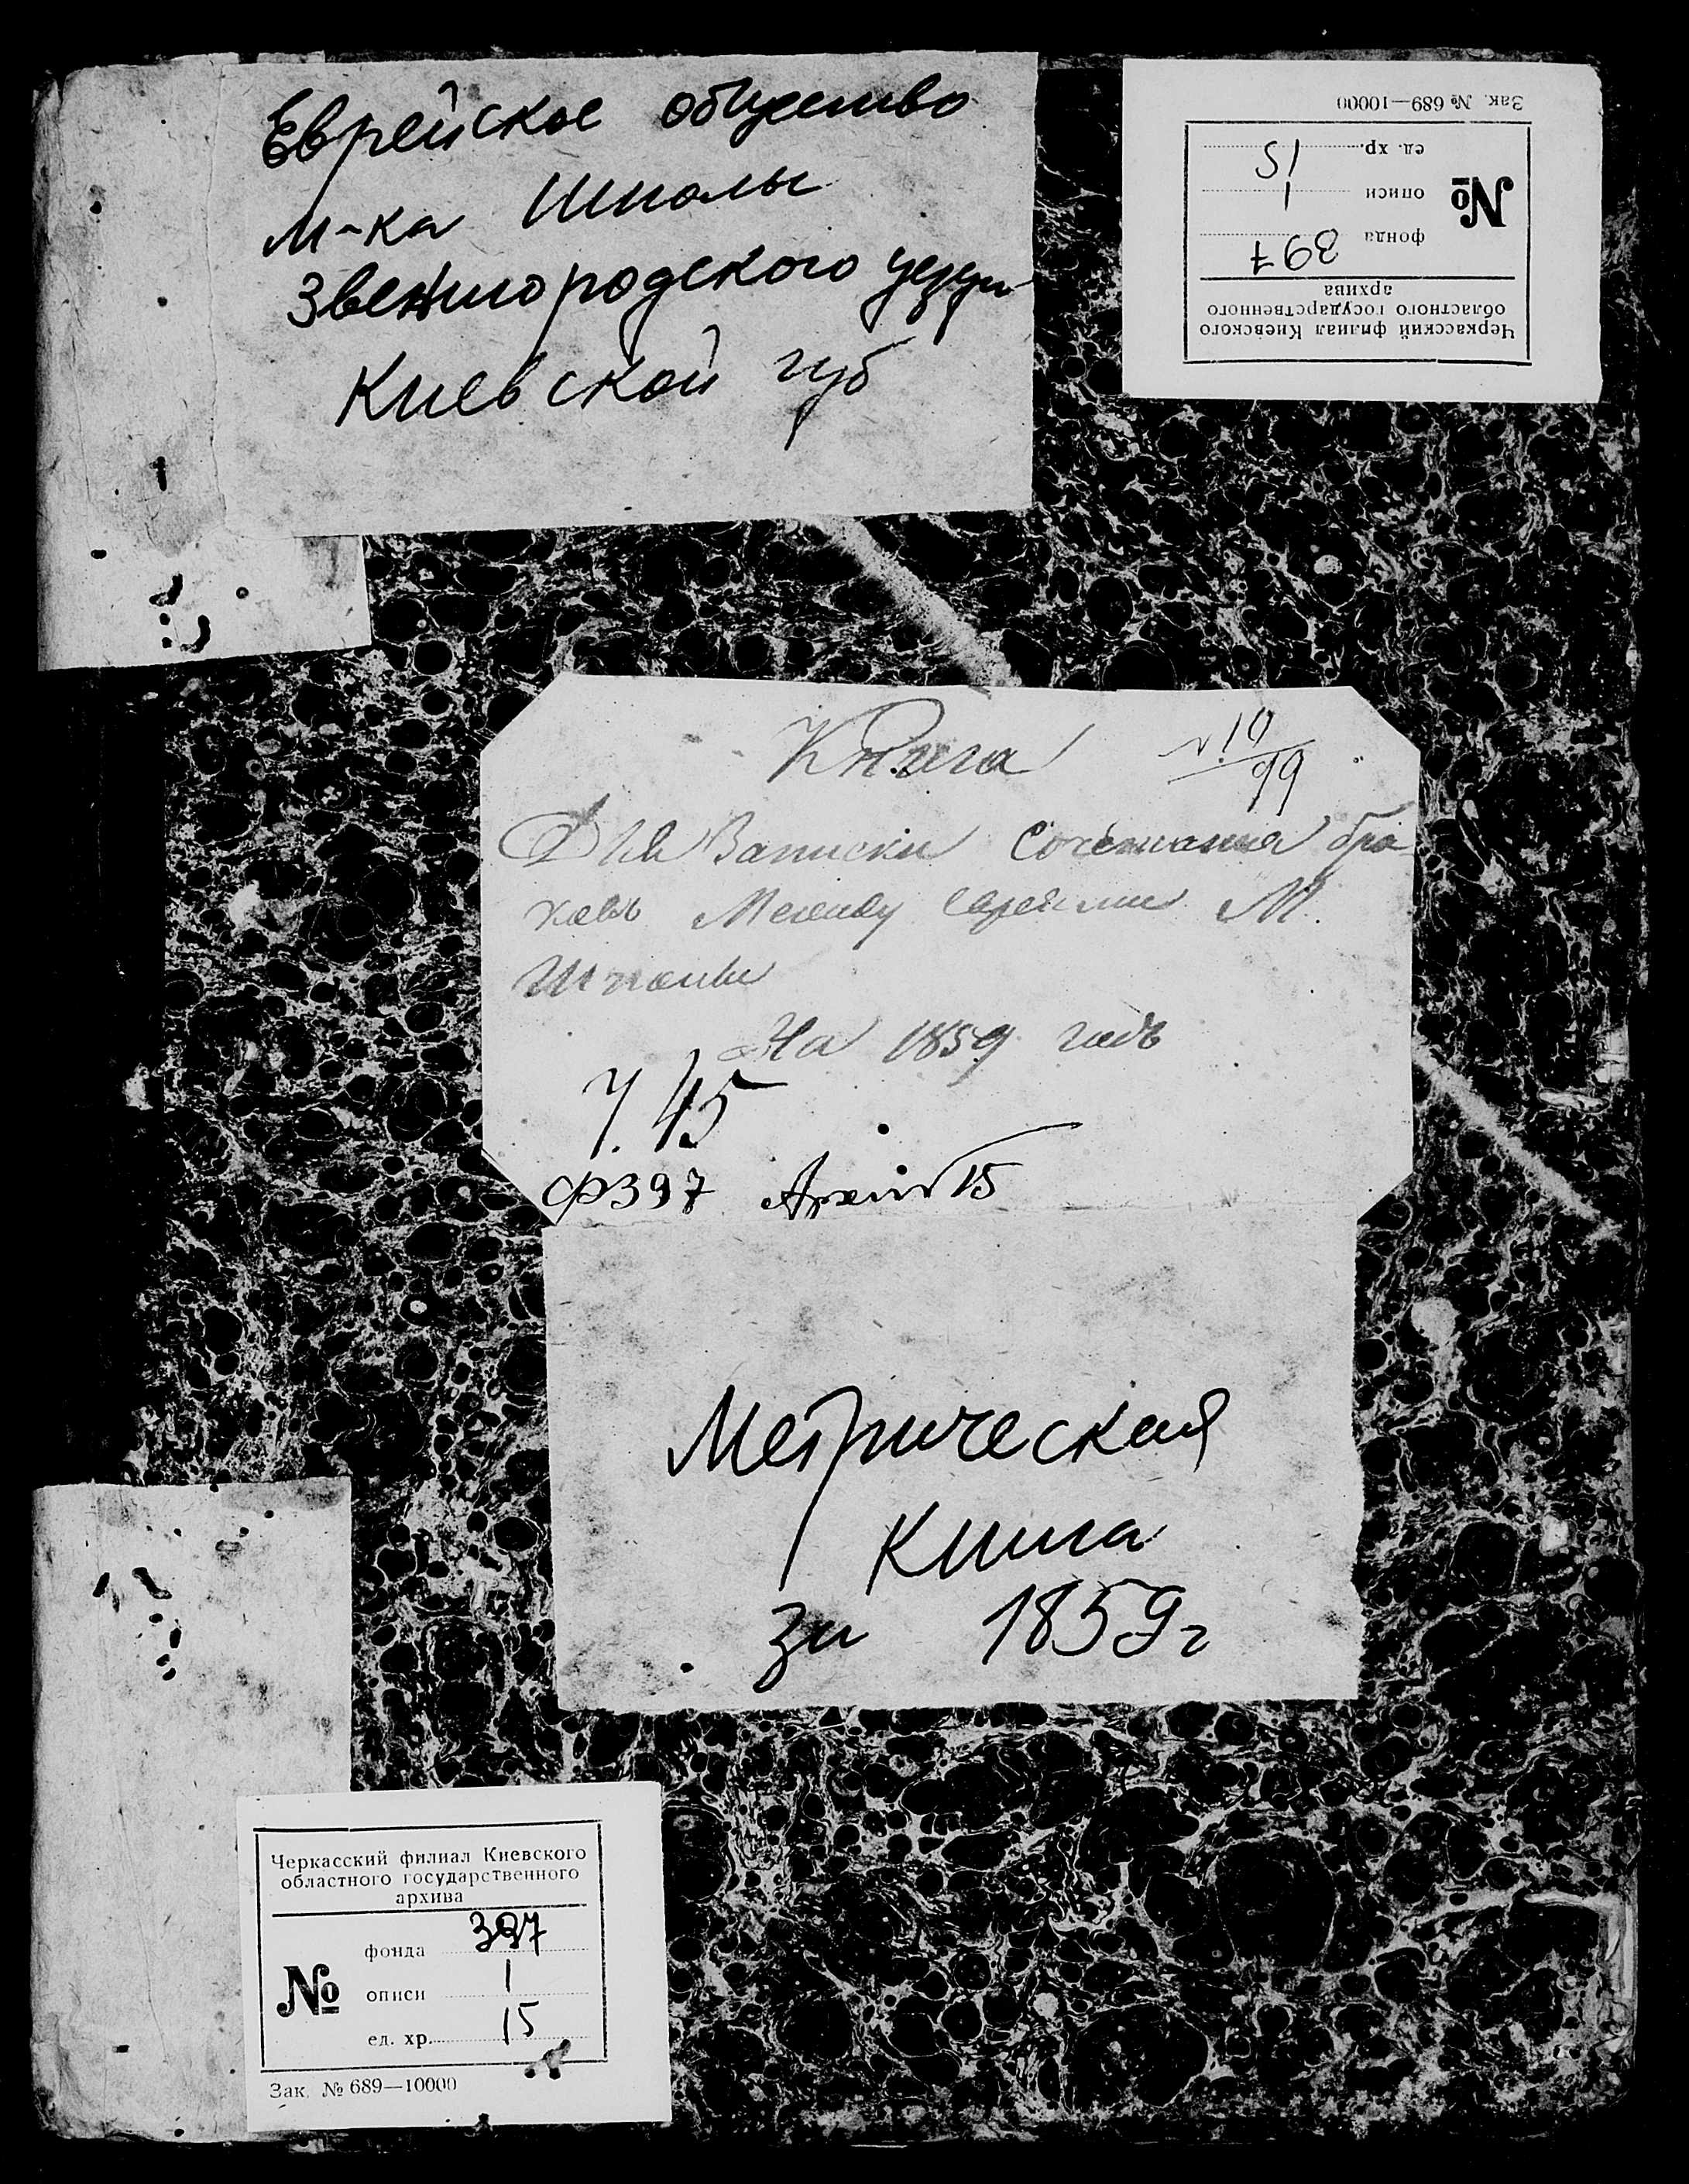 Еврейское общество
м-ка Шполы
Звенигородского уезда
Киевской губ
Зак. № 689—10000
Черкасский филиал Киевского
областного государственного
архива
№
фонда 397
описи 1
ед. хр. 15
Книга
№ 10/99
Для Записки Сочетания бра
ковъ Между евреями М.
Шполы
На 1859 годъ
45
Ф397 15
Метрическая
Книга
за 1859г
Черкасский филиал Киевского
областного государственного
архива
№
фонда 397
описи 1
ед. хр. 15
Зак. № 689—10000